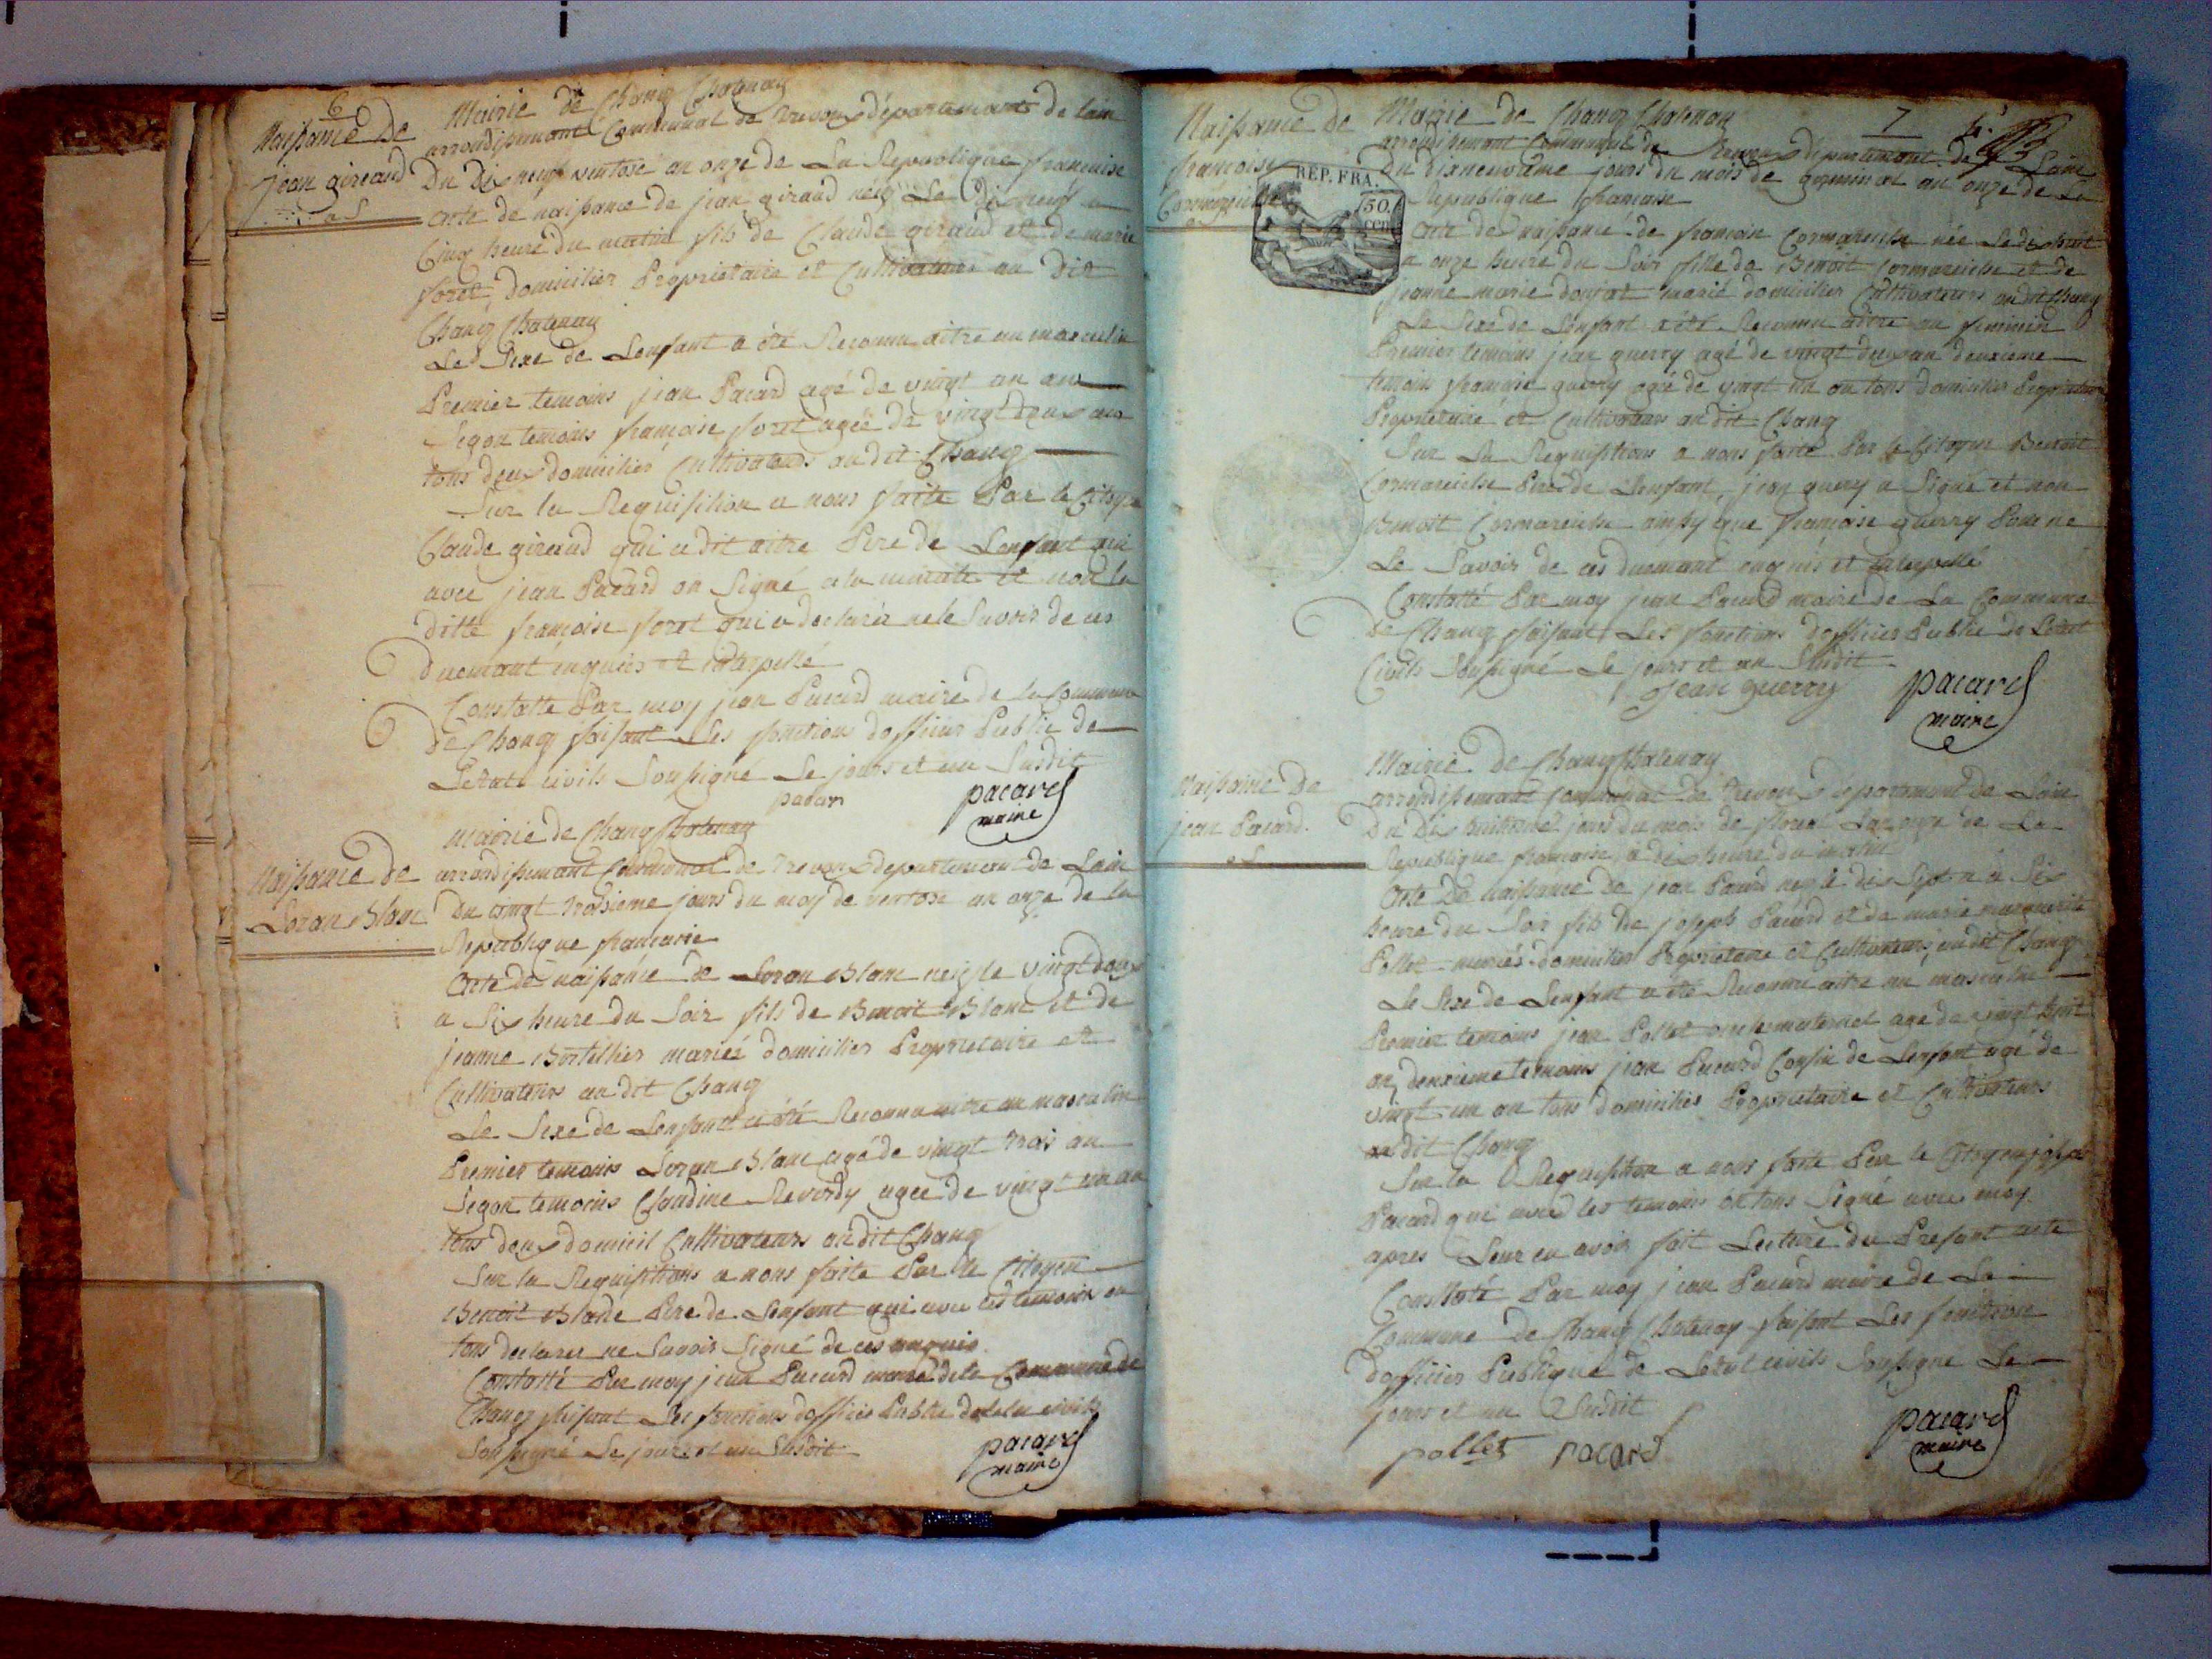 6
Naissance de
Jean giraud
Mairie de Chanoz Chatenay
arrondissemant Communal de Trevoux département de lain
Du Dix neuf ventose an onze de La Republique francaise
acte de naissance de jean giraud néz Le dix neuf a
Cinq heure du matin fils de Claude giraud et de marie
foret domicilier Proprietaire et Cultivateurs au dit
Chanoz Chatenay
Le Sexe de Lenfant a été Reconnu aitre un masculin
Premier temoins jean Pacard agé de vingt un an
Segon temoins francoise foret agée de vingt deux ans
tous deux domicilier Cultivateurs au dit Chanoz
Sur la Requisition a nous faite Par le Citoyen
Claude giraud qui a dit aitre Pere de Lenfant qui
avec jean Pacard on Signé a la minute et non la
ditte francoise foret qui a declarér ne le Savoir de ces
duemant enquis et interpellé
Constatté Par moy jean Pacard maire de la Commune
de Chanoz faisant Les fonctions dofficier Public de
Letat civils Soussigné Le jours et an Susdit
pacar
pacard
maire
Naissance de
Loran Blanc
Mairie de Chanoz Chatenay
arrondissemant Communal de Trevoux departemant de Lain
Du vingt troisieme jours du moy de ventose an onze de la
Republique francaise
Acte de naissance de Loran Blanc neiz le vingt deux
a Six heure du Soir fils de Benoit Blanc et de
jeanne Bortellier mariéz domicilier Proprietaire et
Cultivateurs au dit Chanoz
Le Sexe de Lenfant a été Reconnu aitre un masculin
Premier temoins Loran Blanc agé de vingt trois an
Segon temoins Claudine Reverdy agée de vingt un an
tous deux domicil Cultivateurs au dit Chanoz
Sur la Requisitions a nous faite Par le Citoyen
Benoit Blanc Pere de Lenfant qui avec les temoins on
tous declarer ne Savoir Signé de ces enquis
Constatté Par moy jean Pacard maire de la Commune de
Chanoz faisant Les fonctions dofficier Public de letat civils
Soussigné Le jours et an Susdit
pacard
maire
7
Naissance de
francoise
Cormareiche
REP. FRA.
50
cen
Mairie de Chanoz Chatenay
arrondissemant Communal de Trevoux departemant de Lain
du dixneuvieme jours du mois de germinal an onze de La
Republique francaise
Acte de naissance de francoise Cormareiche née Le dix huit
a onze heure du Soir fille de Benoit Cormareiche et de
jeanne marie donjat marié domicilier Cultivateurs au dit Chanoz
Le Sexe de Lenfant a été Reconnu aitre un feminin
Premier temoins jean guerry agé de vingt deux an deuxieme
temoins francoise guerry agée de vingt un an tous domicilier
Proprietaire et Cultivateurs au dit Chanoz
Sur La Requisitions a nous faite Par le Citoyen Benoit
Cormareiche Pere de Lenfant, jean guerry a Signé et non
Benoit Cormareiche ainsy que francoise guerry Pour ne
Le Savoir de ces duemant enquis et interpellé
Constatté Par moy jean Pacard maire de La Commune
de Chanoz faisant Les fonctions dofficier Public de Letat
Civils Soussigné Le jours et an Susdit
Jean guerry
pacard
maire
Naissance de
jean Pacard
Mairie de Chanoz Chatenay
arrondissemant Communal de Trevoux départemant de Lain
Du Dix huitieme jours du mois de floreal Lan onze de La
Republique francaise a dix heure du matin
Acte De naissance de jean Pacard neiz le dix Sept a Six
heure du Soir fils de joseph Pacard et de marie marguerite
Pollet mariés domicilier Proprietaire et Cultivateurs au dit Chanoz
Le Sexe de Lenfant a été Reconnu aitre un masculin
Premier temoins jean Pollet oncle maternel agé de vingt huit
an deuxieme temoins jean Pacard Cousin de Lenfant agé de
vingt un an tous domicilies Proprietaire et Cultivateurs
au dit Chanoz
Sur la Requisition a nous faite Par le Citoyen joseph
Pacard qui avec les temoins on tous Signé avec moy
apres Leur en avoir fait Lecture du Presant acte
Constaté Par moy jean Pacard maire de La
Commune de Chanoz Chatenay faisant Les fonctions
dofficier Publique de Letat civils Soussigné Le
jours et an Susdit
pollet pacard
pacard
maire